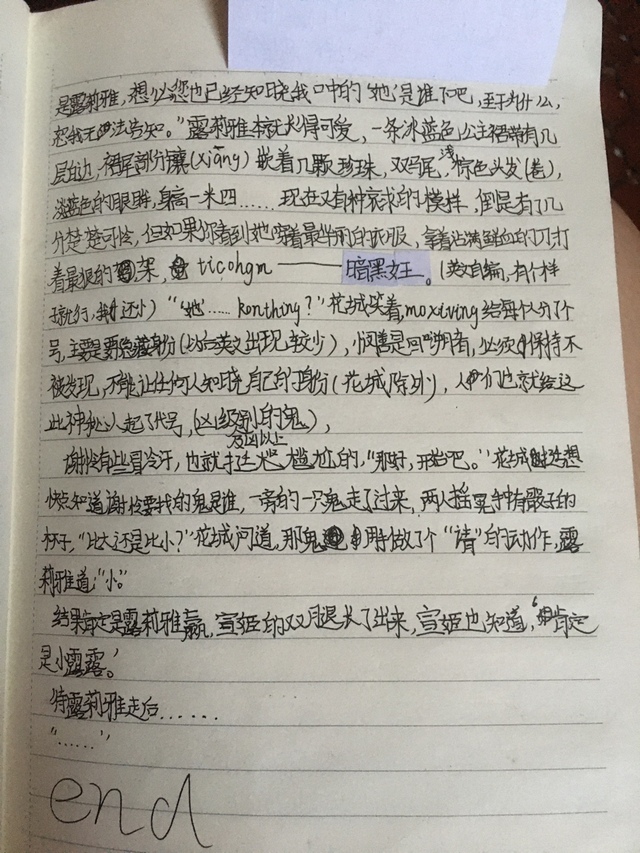 是露莉雅,想必您也已经知晓我口中的‘她’是谁了吧,至于为什么,
恕我无法告知。”露莉雅本就长得可爱,一条冰蓝色公主裙带有几
层白边,裙尾部分镶(xiāng)嵌着几颗珍珠,双马尾,浅棕色头发(卷),
淡蓝色的眼眸,身高一米四……现在又有种哀求的模样,倒是有了几
分楚楚可怜,但如果你看到她穿着最华丽的衣服,拿着沾满鲜血的刀打
着最狠的架, ticohgm ——— 暗黑女王。(英文自编,有个样
子就行,我还小)“‘她’…… konthing?”花城笑着,moxiving给每个人分了个
号,主要是要隐藏身份(以后英文出现较少),是回响拥有,必须保持不
被发现,不能让任何人知晓自己的身份(花城除外),人们也就给这
些神秘人起了代号,(凶级别的鬼),
及凶以上
谢怜有些冒冷汗,也就打尴尬的,“那好,开始吧。”花城想
快点知道谢怜要找的鬼是谁,一旁的一只鬼走了过来,两人摇晃手中有骰子的
杯子,“比大还是比小?”花城问道,那鬼用手做了个“请”的动作,露
莉雅道:“小。”
结果肯定是露莉雅赢,宣姬的双腿长了出来,宣姬也知道,‘肯定
是小露露。’
待露莉雅走后……
“……”
end